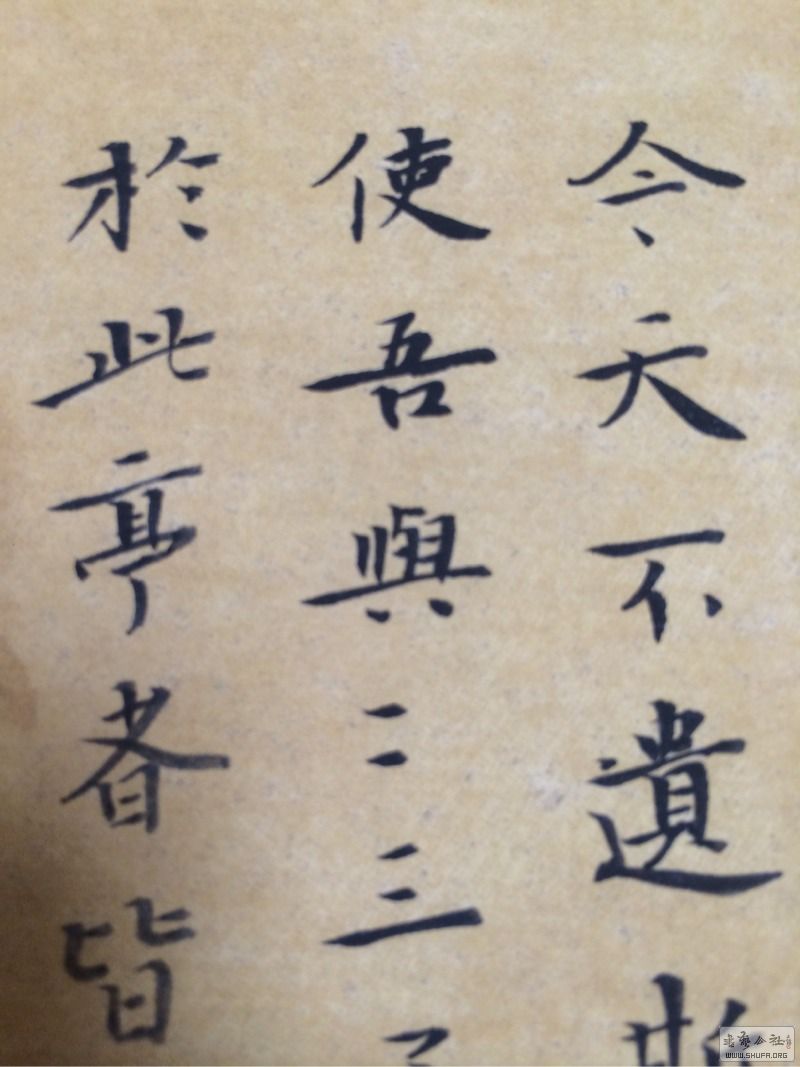 今天不遺
使吾與二三
於此亭者皆
WWW.SHUFA.ORG